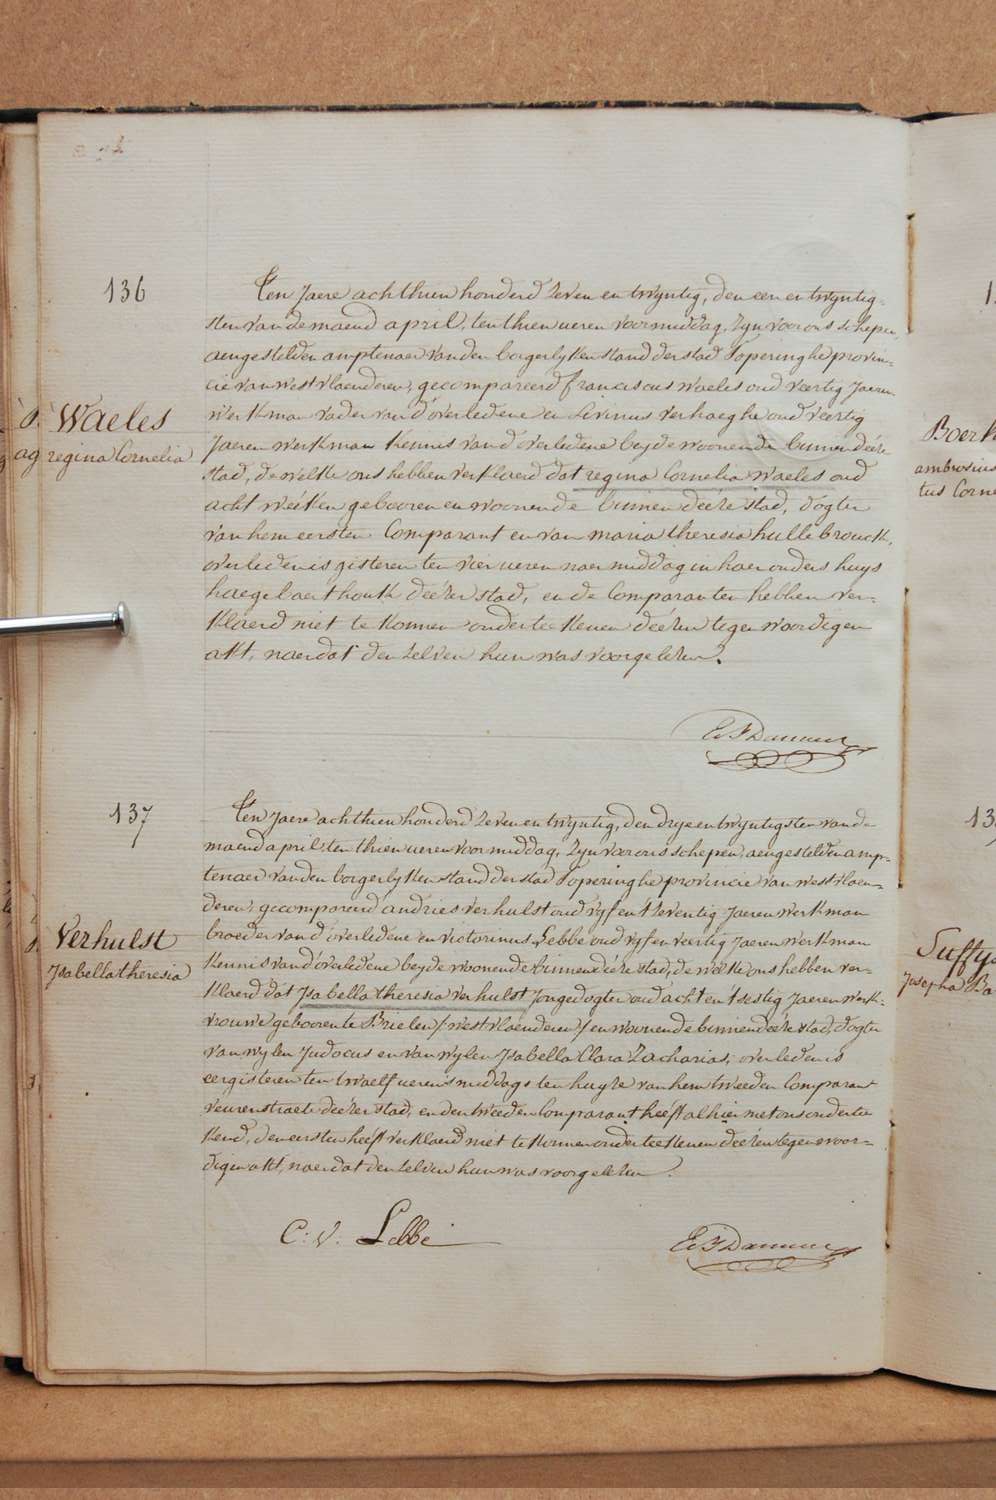 136
Waeles
regina Cornelia
Ten Jaere achthien honderd zeven en twyntig, den een en twyntig-
sten van de maend april, ten thien ueren voormiddag, Zyn voor ons schepen,
aengestelden amptenaer van den borgerlyken stand der stad Poperinghe provin-
cie van westvlaenderen, gecompareerd franciscus waeles oud veertig Jaeren
werkman vader van d'overledene en Livinus Verhaeghe oud veertig
Jaeren werkman kennis van d'overledene beyde woonende binnen deéze
stad, de welke ons hebben verklaerd dat regina Cornelia Waeles oud
acht weéken gebooren en woonende binnen deéze stad, dogter
van hem eersten Comparant en van maria theresia hullebrouck,
overleden is gisteren ten vier ueren naermiddag in haer ouders huys
haegebaerthouk deézer stad, en de Comparanten hebben ver-
klaerd niet te konnen onderteekenen deézen tegenwoordigen
akt, naerdat den zelven hun was voorgelezen.
137
Verhulst
Isabella theresia
Ten Jaere achthien honderd zeven en twyntig, den drye en twyntigsten van de
maend april, ten thien ueren voormiddag, Zyn voor ons schepen, aengestelden amp-
tenaer van den borgerlyken stand der stad Poperinghe provincie van westvlaen-
deren, gecompareerd andries verhulst oud vyf en t'zeventig Jaeren werkman
broeder van d'overledene en victorinus Lebbe oud vyf en veertig Jaeren werkman
kennis van d'overledene beyde woonende binnen deéze stad, de welke ons hebben ver-
klaerd dat Isabella theresia verhulst Jongedogter oud acht en t'sestig Jaeren werk-
vrouwe gebooren te Brielen /westvlaenderen/ en woonende binnen deéze stad, dogter
van wylen Judocus en van wylen Isabella Clara Zacharias, overleden is
eergisteren ten twaelf ueren s'middags ten huyze van hem tweeden Comparant
veurenstraete deézer stad, en den tweeden Comparant heéft alhier met ons onderteé-
kend, den eersten heéft verklaerd niet te konnen onderteekenen deézen tegenwoor-
digen akt, naerdat den zelven hun was voorgelezen.
C: V: Lebbe
Boerh
ambrosius
tus Corne
13
Suffys
Josepha Ba